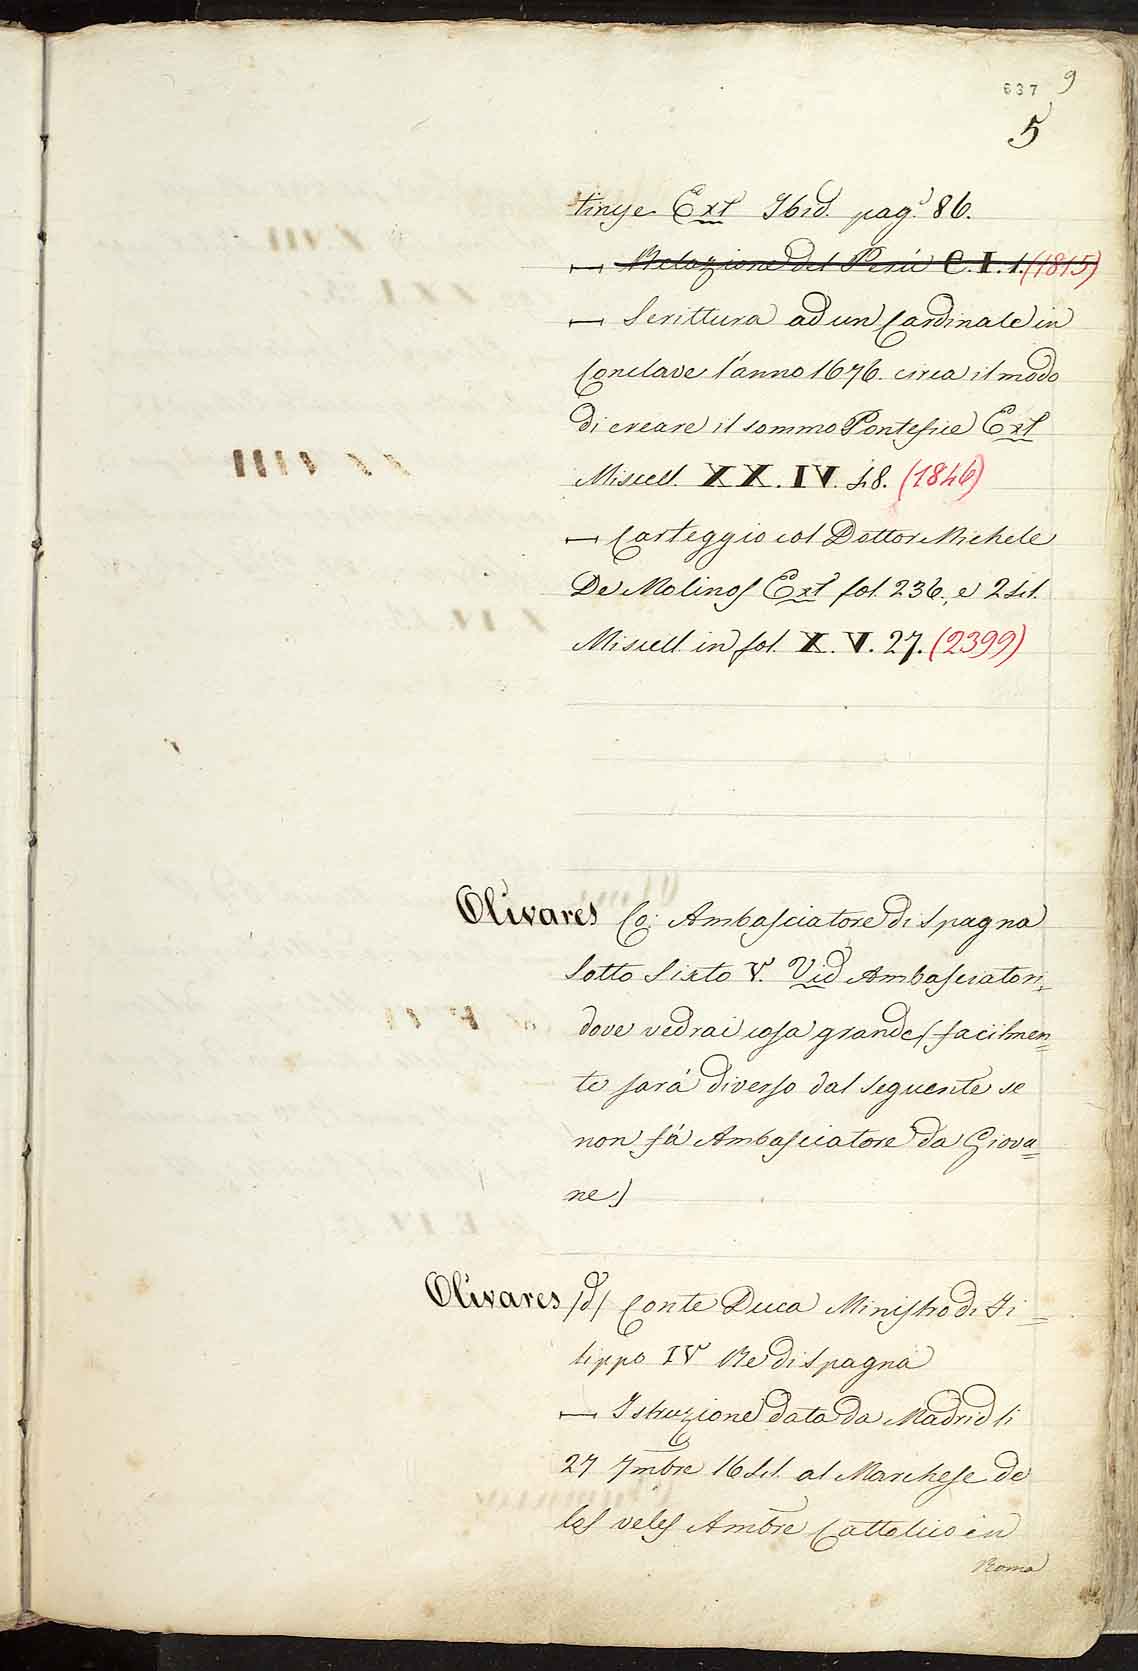 637 9
5
tinge Ext Ibid. pag. 86.
— Relazione del Perù C.I.1.(1815)
— Scrittura ad un Cardinale in
Conclave l'anno 1676. circa il modo
di creare il sommo Pontefice Ext
Miscell. XX.IV.48. (1846)
— Carteggio col Dottor Michele
De Molinos Ext fol. 236., e 241.
Miscell in fol. X.V.27. (2399)
Olivares Co: Ambasciatore di Spagna
sotto Sixto V. Vid Ambasciatori,
dove vedrai cosa grande (facilmen=
te sarà diverso dal seguente se
non fà Ambasciatore da Giova=
ne)
Olivares (d) Conte Duca Ministro di Fi=
lippo IV Re di Spagna
— Istruzione data da Madrid li
27 7mbre 1641. al Marchese de
los veles Ambre Cattolico in
Roma